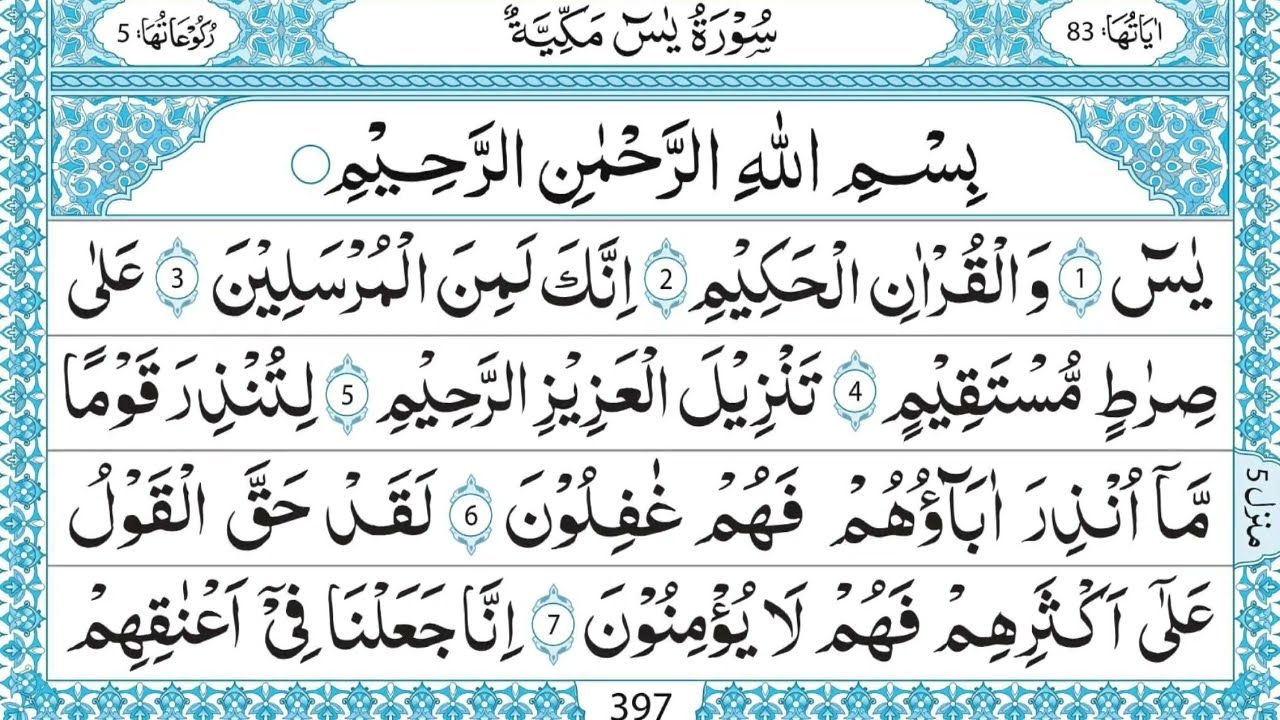 اٰيَاتُهَا: 83 سُوْرَةُ يٰسٓ مَكِّيَّةٌ رُكُوْعَاتُهَا: 5
بِسْمِ اللّٰهِ الرَّحْمٰنِ الرَّحِيْمِ
يٰسٓ 1 وَالْقُرْاٰنِ الْحَكِيْمِ 2 اِنَّكَ لَمِنَ الْمُرْسَلِيْنَ 3 عَلٰى
صِرٰطٍ مُّسْتَقِيْمٍ 4 تَنْزِيْلَ الْعَزِيْزِ الرَّحِيْمِ 5 لِتُنْذِرَ قَوْمًا
مَّآ اُنْذِرَ اٰبَآؤُهُمْ فَهُمْ غٰفِلُوْنَ 6 لَقَدْ حَقَّ الْقَوْلُ
عَلٰٓى اَكْثَرِهِمْ فَهُمْ لَا يُؤْمِنُوْنَ 7 اِنَّا جَعَلْنَا فِيْٓ اَعْنٰقِهِمْ
منزل 5
397